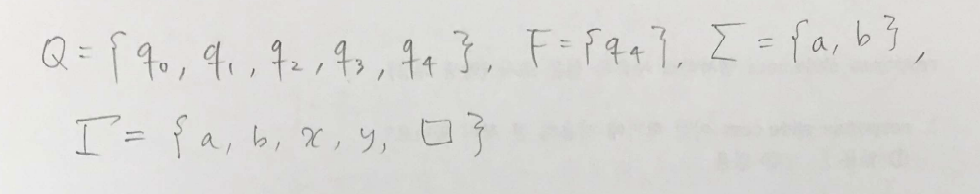 Q = { q₀, q₁, q₂, q₃, q₄ }, F = { q₄ }, Σ = { a, b },
Γ = { a, b, x, y, □ }